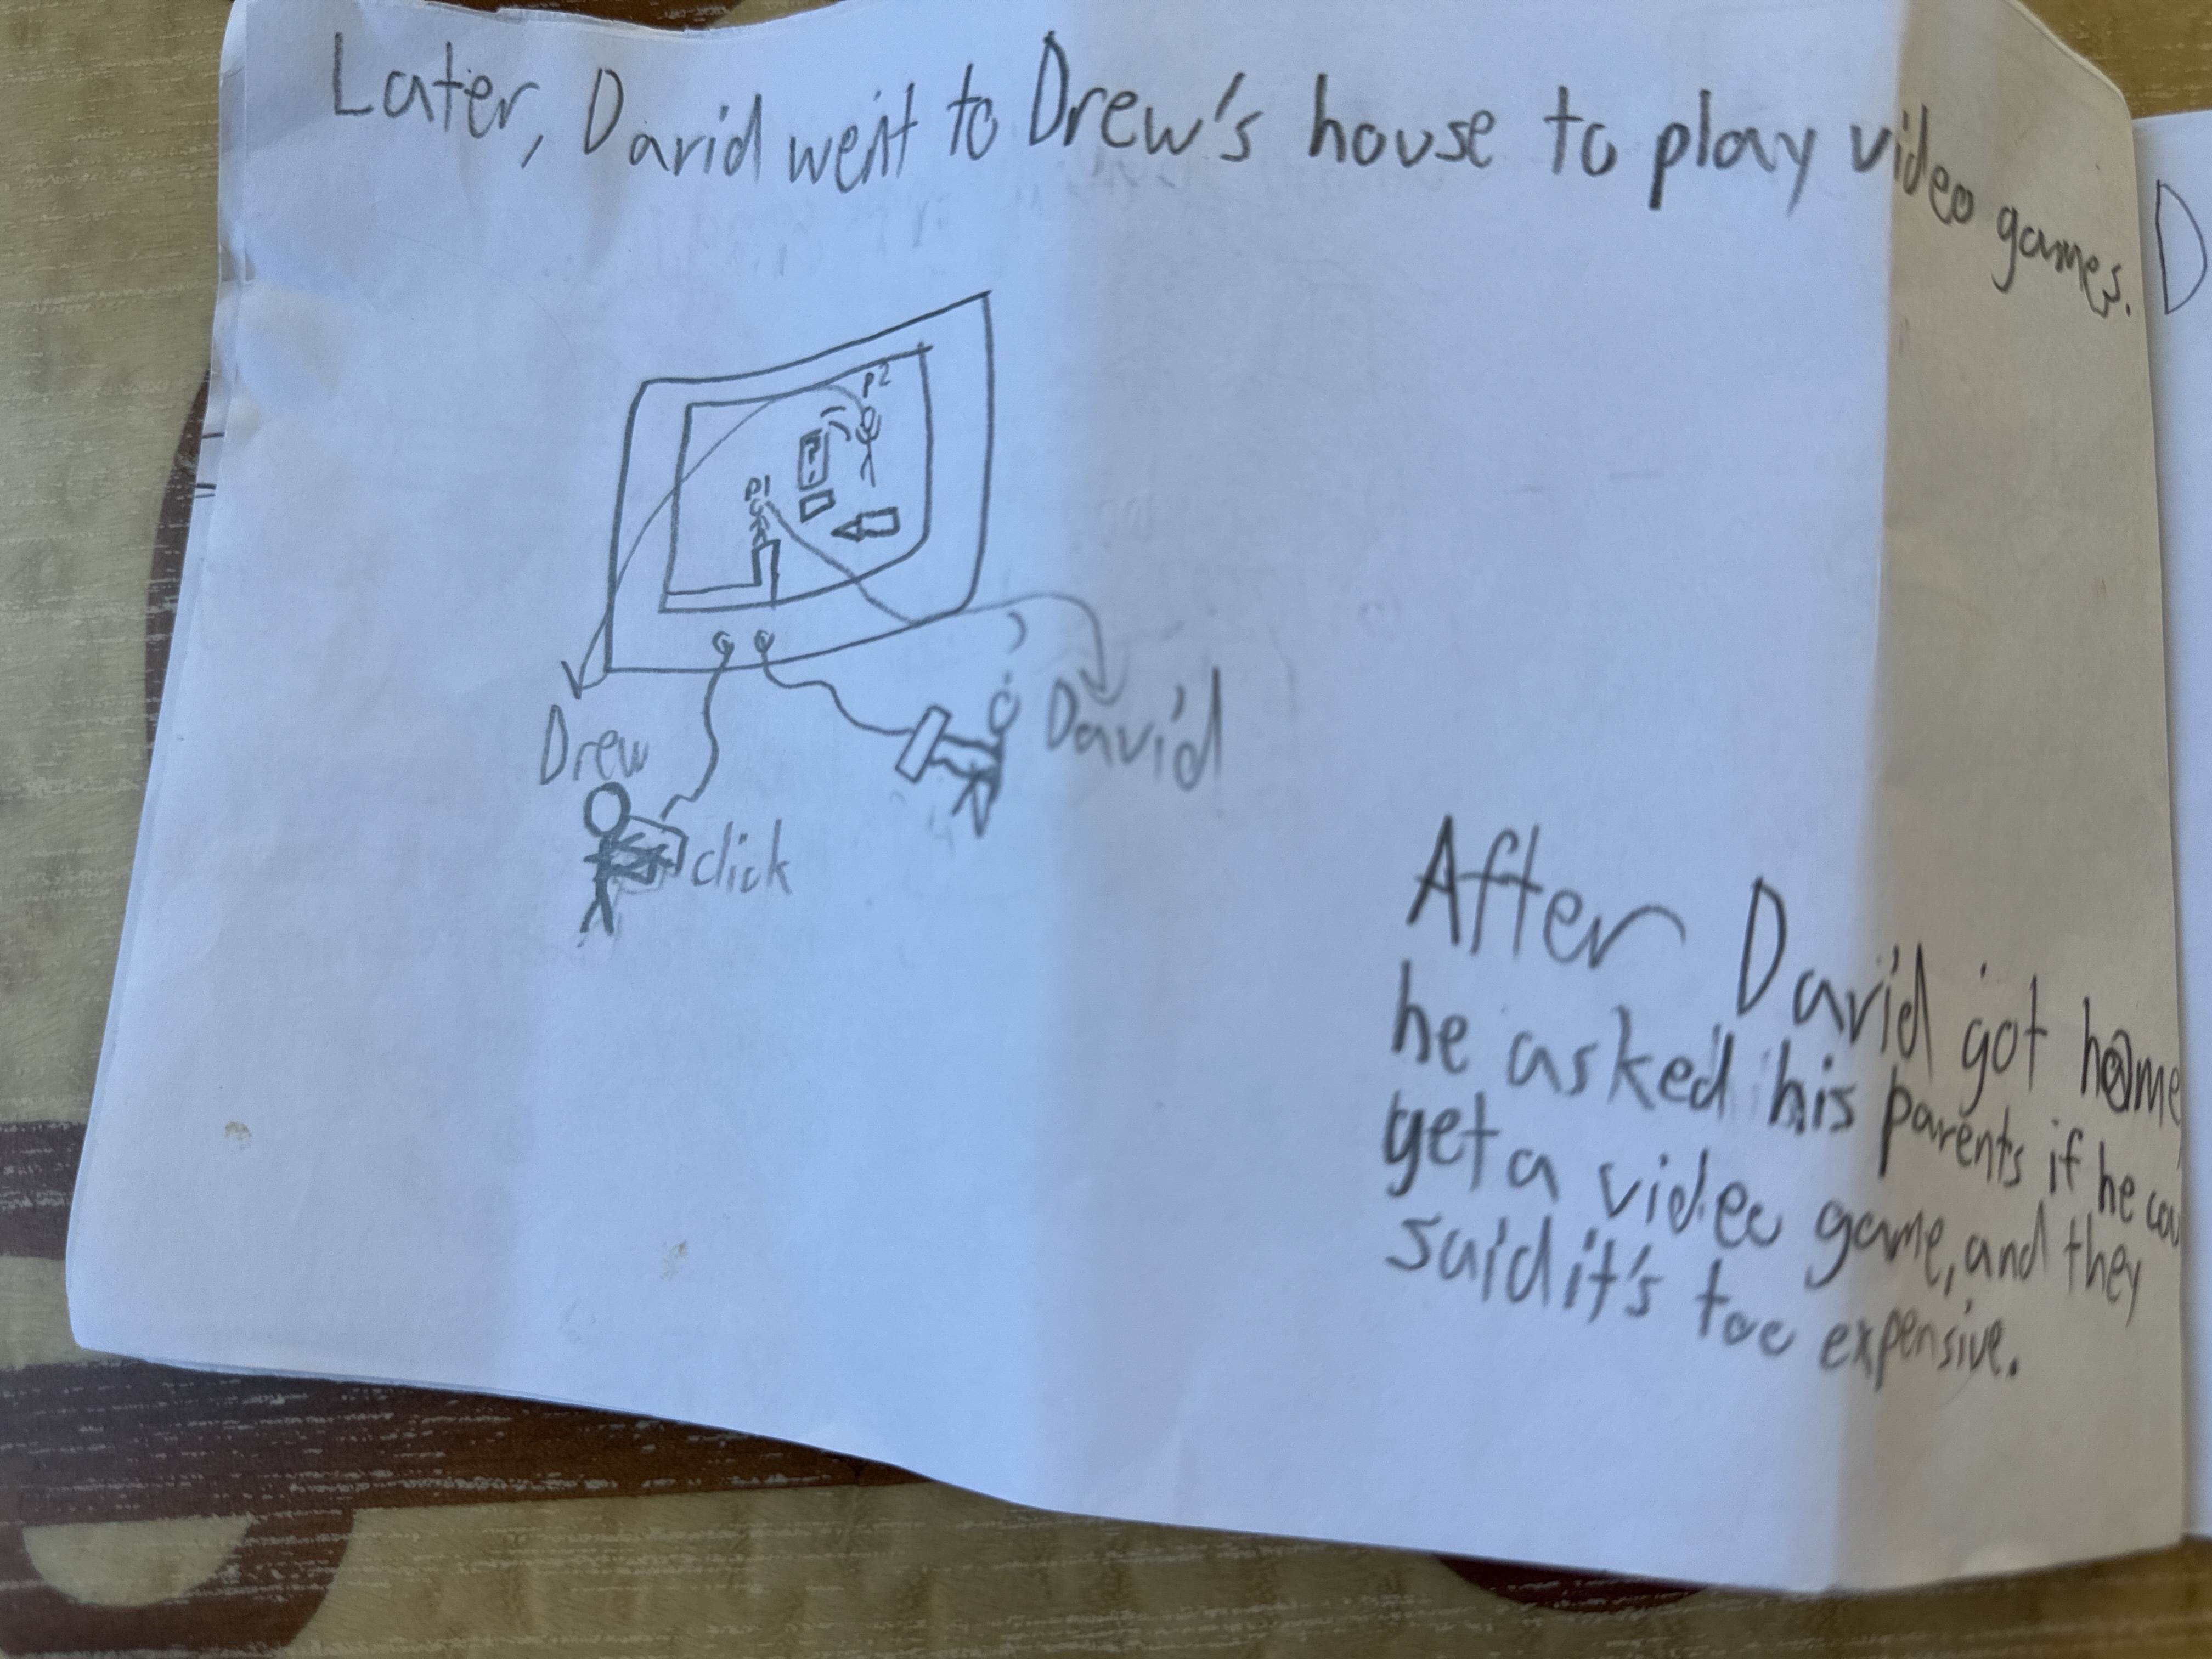 Later, David went to Drew's house to play video games.
D
P2
?
P1
Drew
David
click
After David got home,
he asked his parents if he cou
get a video game, and they
said it's too expensive.